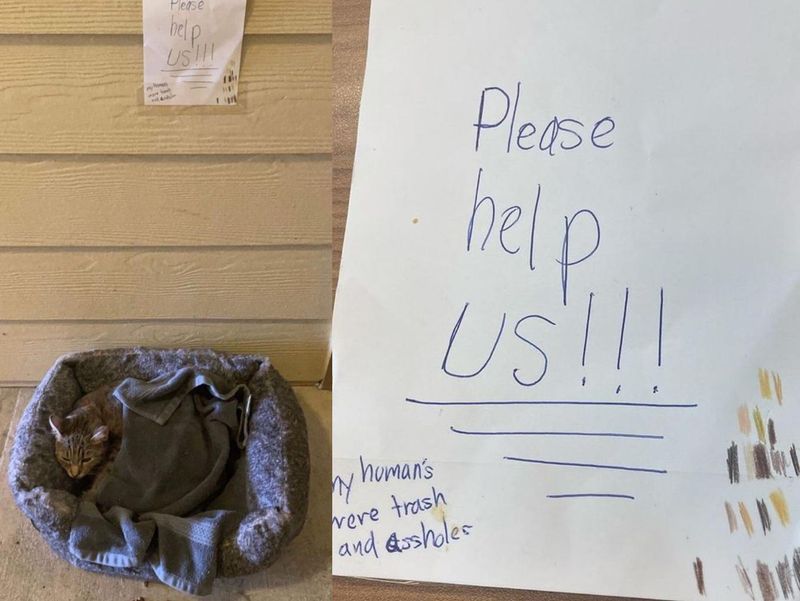 Please
help
us!!!
my human's
were trash
and asshole
Please
help
us!!!
my human's
were trash
and assholes